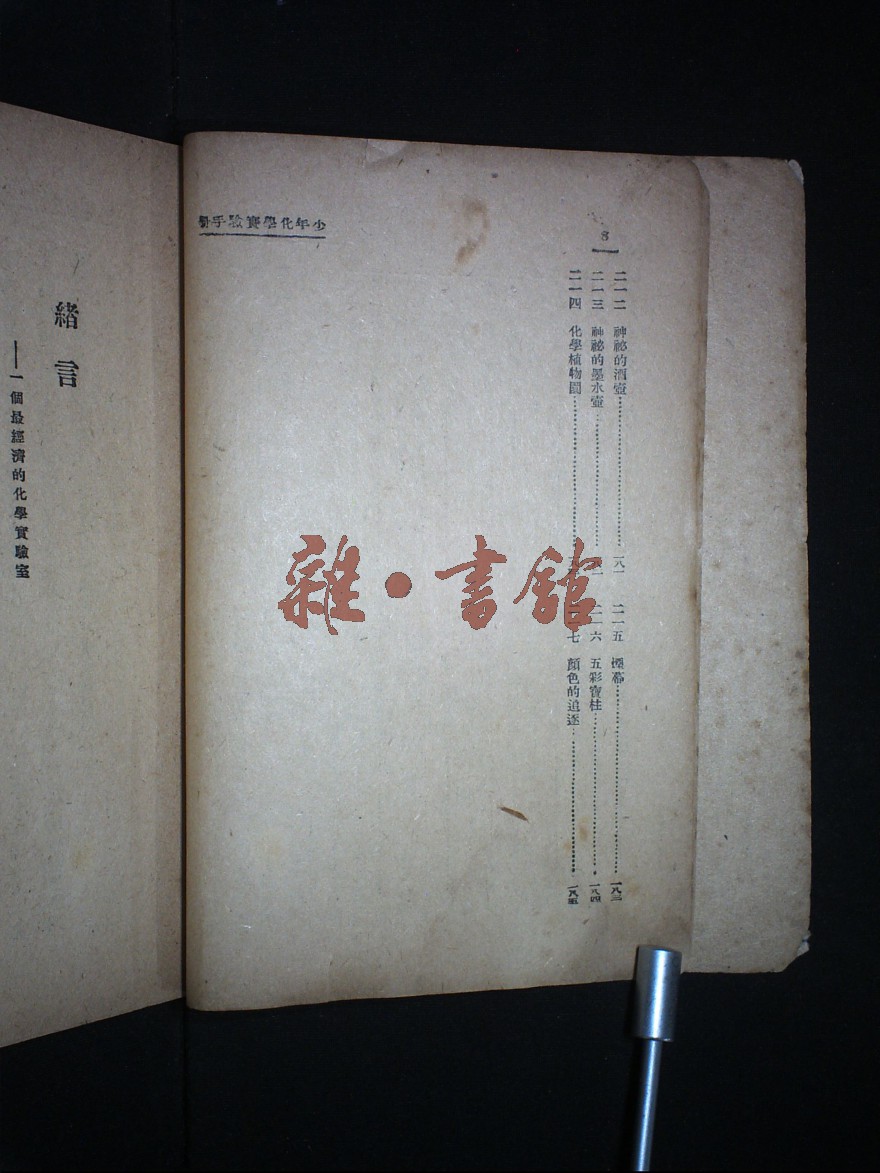 少年化學實驗手冊
8
二一二 神祕的酒壺 一八一
二一三 神祕的墨水壺
二一四 化學植物園
二一五 煙幕 一八三
二一六 五彩寶柱 一八四
二一七 顏色的追逐 一八五
緒言
——一個最經濟的化學實驗室
雜·書館